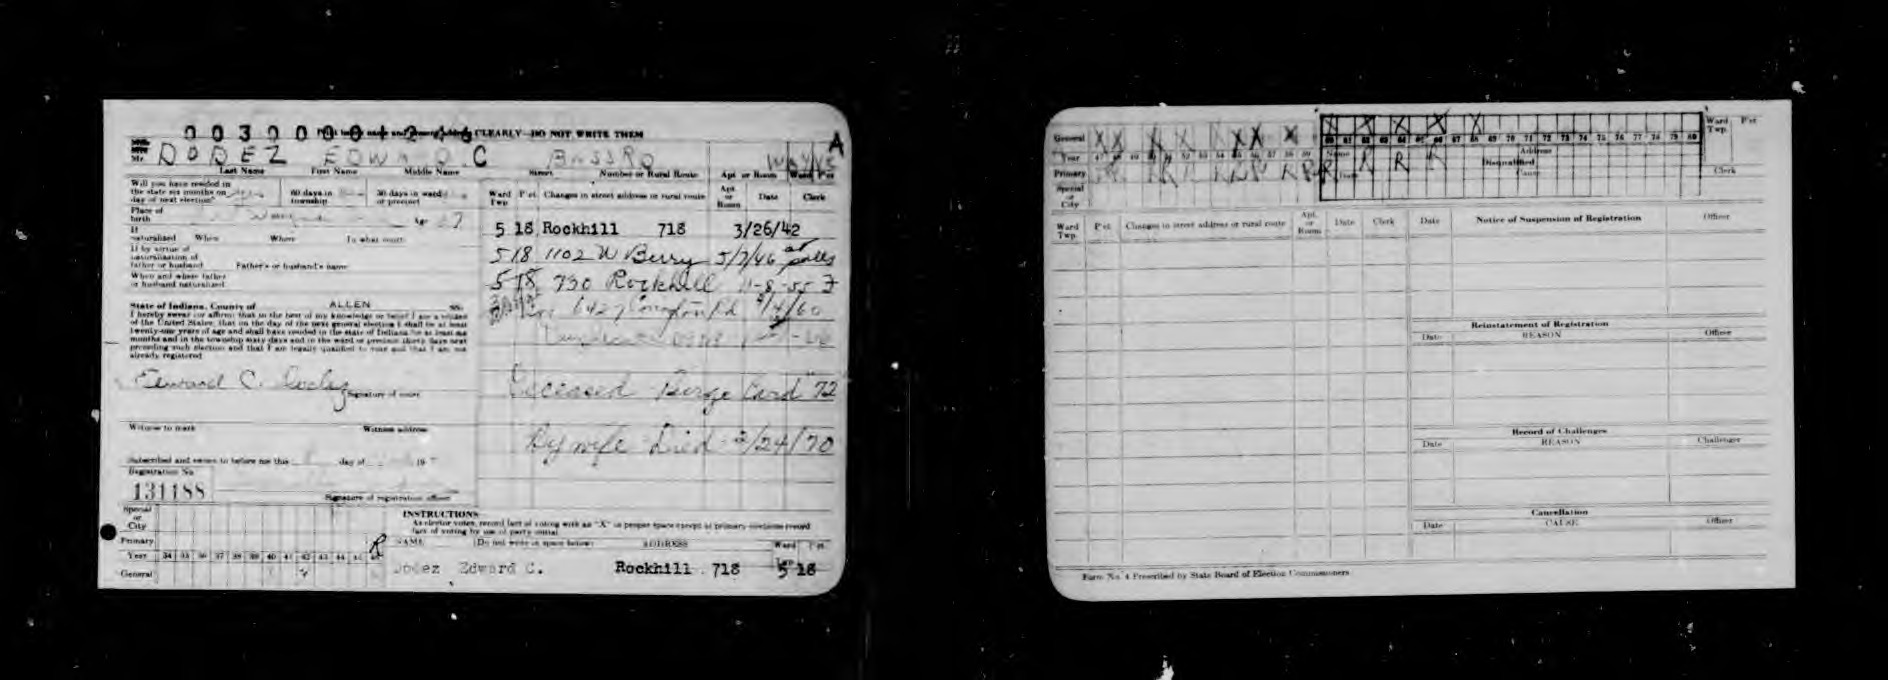 0030000+246
CLEARLY—DO NOT WRITE THEM
A
Mr. DODEZ EDWARD C BASS RD WAYNE
Last Name First Name Middle Name Street Number or Rural Route Apt. or Room Ward Pct
Will you have resided in
the state six months on
day of next election?
60 days in
township
30 days in ward
or precinct
Place of
birth
Age
If
naturalized When Where In what court
If by virtue of
naturalization of
father or husband Father's or husband's name
When and where father
or husband naturalized
State of Indiana, County of ALLEN SS:
I hereby swear (or affirm) that to the best of my knowledge or belief I am a citizen
of the United States; that on the day of the next general election I shall be at least
twenty-one years of age and shall have resided in the state of Indiana for at least six
months and in the township sixty days and in the ward or precinct thirty days next
preceding such election and that I am legally qualified to vote and that I am not
already registered
Edward C. Dodez
Signature of voter
Witness to mark Witness address
Subscribed and sworn to before me this day of 19
Registration No
131188
Signature of registration officer
Ward Twp. Pct. Changes in street address or rural route Apt. or Room Date Clerk
5 18 Rockhill 718 3/26/42
5 18 1102 W Berry 5/7/46 at polls
5 18 730 Rockhill 11-8-55 F
6427 Covington Rd /60
Deceased Purge Card '72
By wife Died 2/24/70
Special
or
City
Primary R
Year 34 35 36 37 38 39 40 41 42 43 44 45 46
General
INSTRUCTIONS
As elector votes, record fact of voting with an "X" in proper space except at primary elections record
fact of voting by use of party initial
NAME (Do not write in space below) ADDRESS Ward Pct.
Dodez Edward C. Rockhill 718 5 18
General X X X X X X X X X X X X
Year 47 48 49 50 51 52 53 54 55 56 57 58 59 60 61 62 63 64 65 66 67 68 69 70 71 72 73 74 75 76 77 78 79 80
Primary
Special
or
City
Name Address
Disqualified
Date Cause
Ward
Twp.
Pct
Clerk
Ward
Twp.
Pct. Changes in street address or rural route Apt.
or
Room
Date Clerk
Date Notice of Suspension of Registration Officer
Reinstatement of Registration
Date REASON Officer
Record of Challenges
Date REASON Challenger
Cancellation
Date CAUSE Officer
Form No. 4 Prescribed by State Board of Election Commissioners